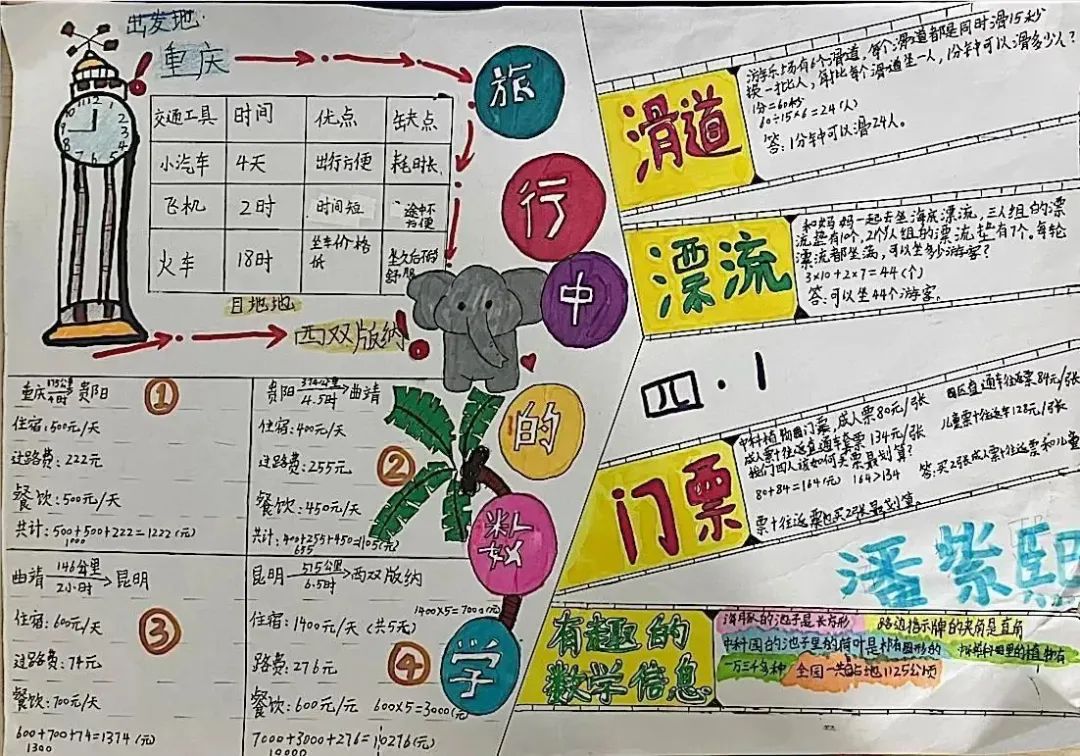 出发地
重庆
旅
行
中
的
数
学
交通工具 时间 优点 缺点
小汽车 4天 出行方便 耗时长
飞机 2时 时间短 途中不方便
火车 18时 坐车价格低
目地地
西双版纳
① 重庆 4时 贵阳
住宿:500元/天
过路费:222元
餐饮:500元/天
共计:500+500+222=1222(元)
1000
② 贵阳 4.5时 曲靖
住宿:400元/天
过路费:255元
餐饮:450元/天
共计:400+255+450=1105(元)
655
③ 曲靖 146公里 2小时 昆明
住宿:600元/天
过路费:74元
餐饮:700元/天
600+700+74=1374(元)
1300
④ 昆明 575公里 6.5时 西双版纳
1400×5=7000(元)
住宿:1400元/天(共5天)
路费:276元
餐饮:600元/元 600×5=3000(元)
7000+3000+276=10276(元)
10000
滑道
游乐场有6个滑道,每个滑道都是同时滑15秒
换一批人,每批每个滑道坐一人,1分钟可以滑多少人?
1分=60秒
60÷15×6=24(人)
答:1分钟可以滑24人。
漂流
和妈妈一起去坐海底漂流,三人组的漂
流垫有10个,2个人组的漂流垫有7个。每轮
漂流都坐满,可以坐多少游客?
3×10+2×7=44(个)
答:可以坐44个游客。
四.1
门票
中科植物园门票,成人票80元/张 园区直通车往返票84元/张
成人票+往返直通车套票134元/张 儿童票+往返车128元/张
我们四人该如何买票最划算?
80+84=164(元) 164>134 答:买2张成人票+往返票和儿童
票+往返票也买2张最划算。
潘紫熙
有趣的
数学信息
海豚的池子是长方形 路边指示牌的夹角是直角
中科园的池子里的荷叶是椭圆形的
一万三千多种 全国一共占地1125公顷